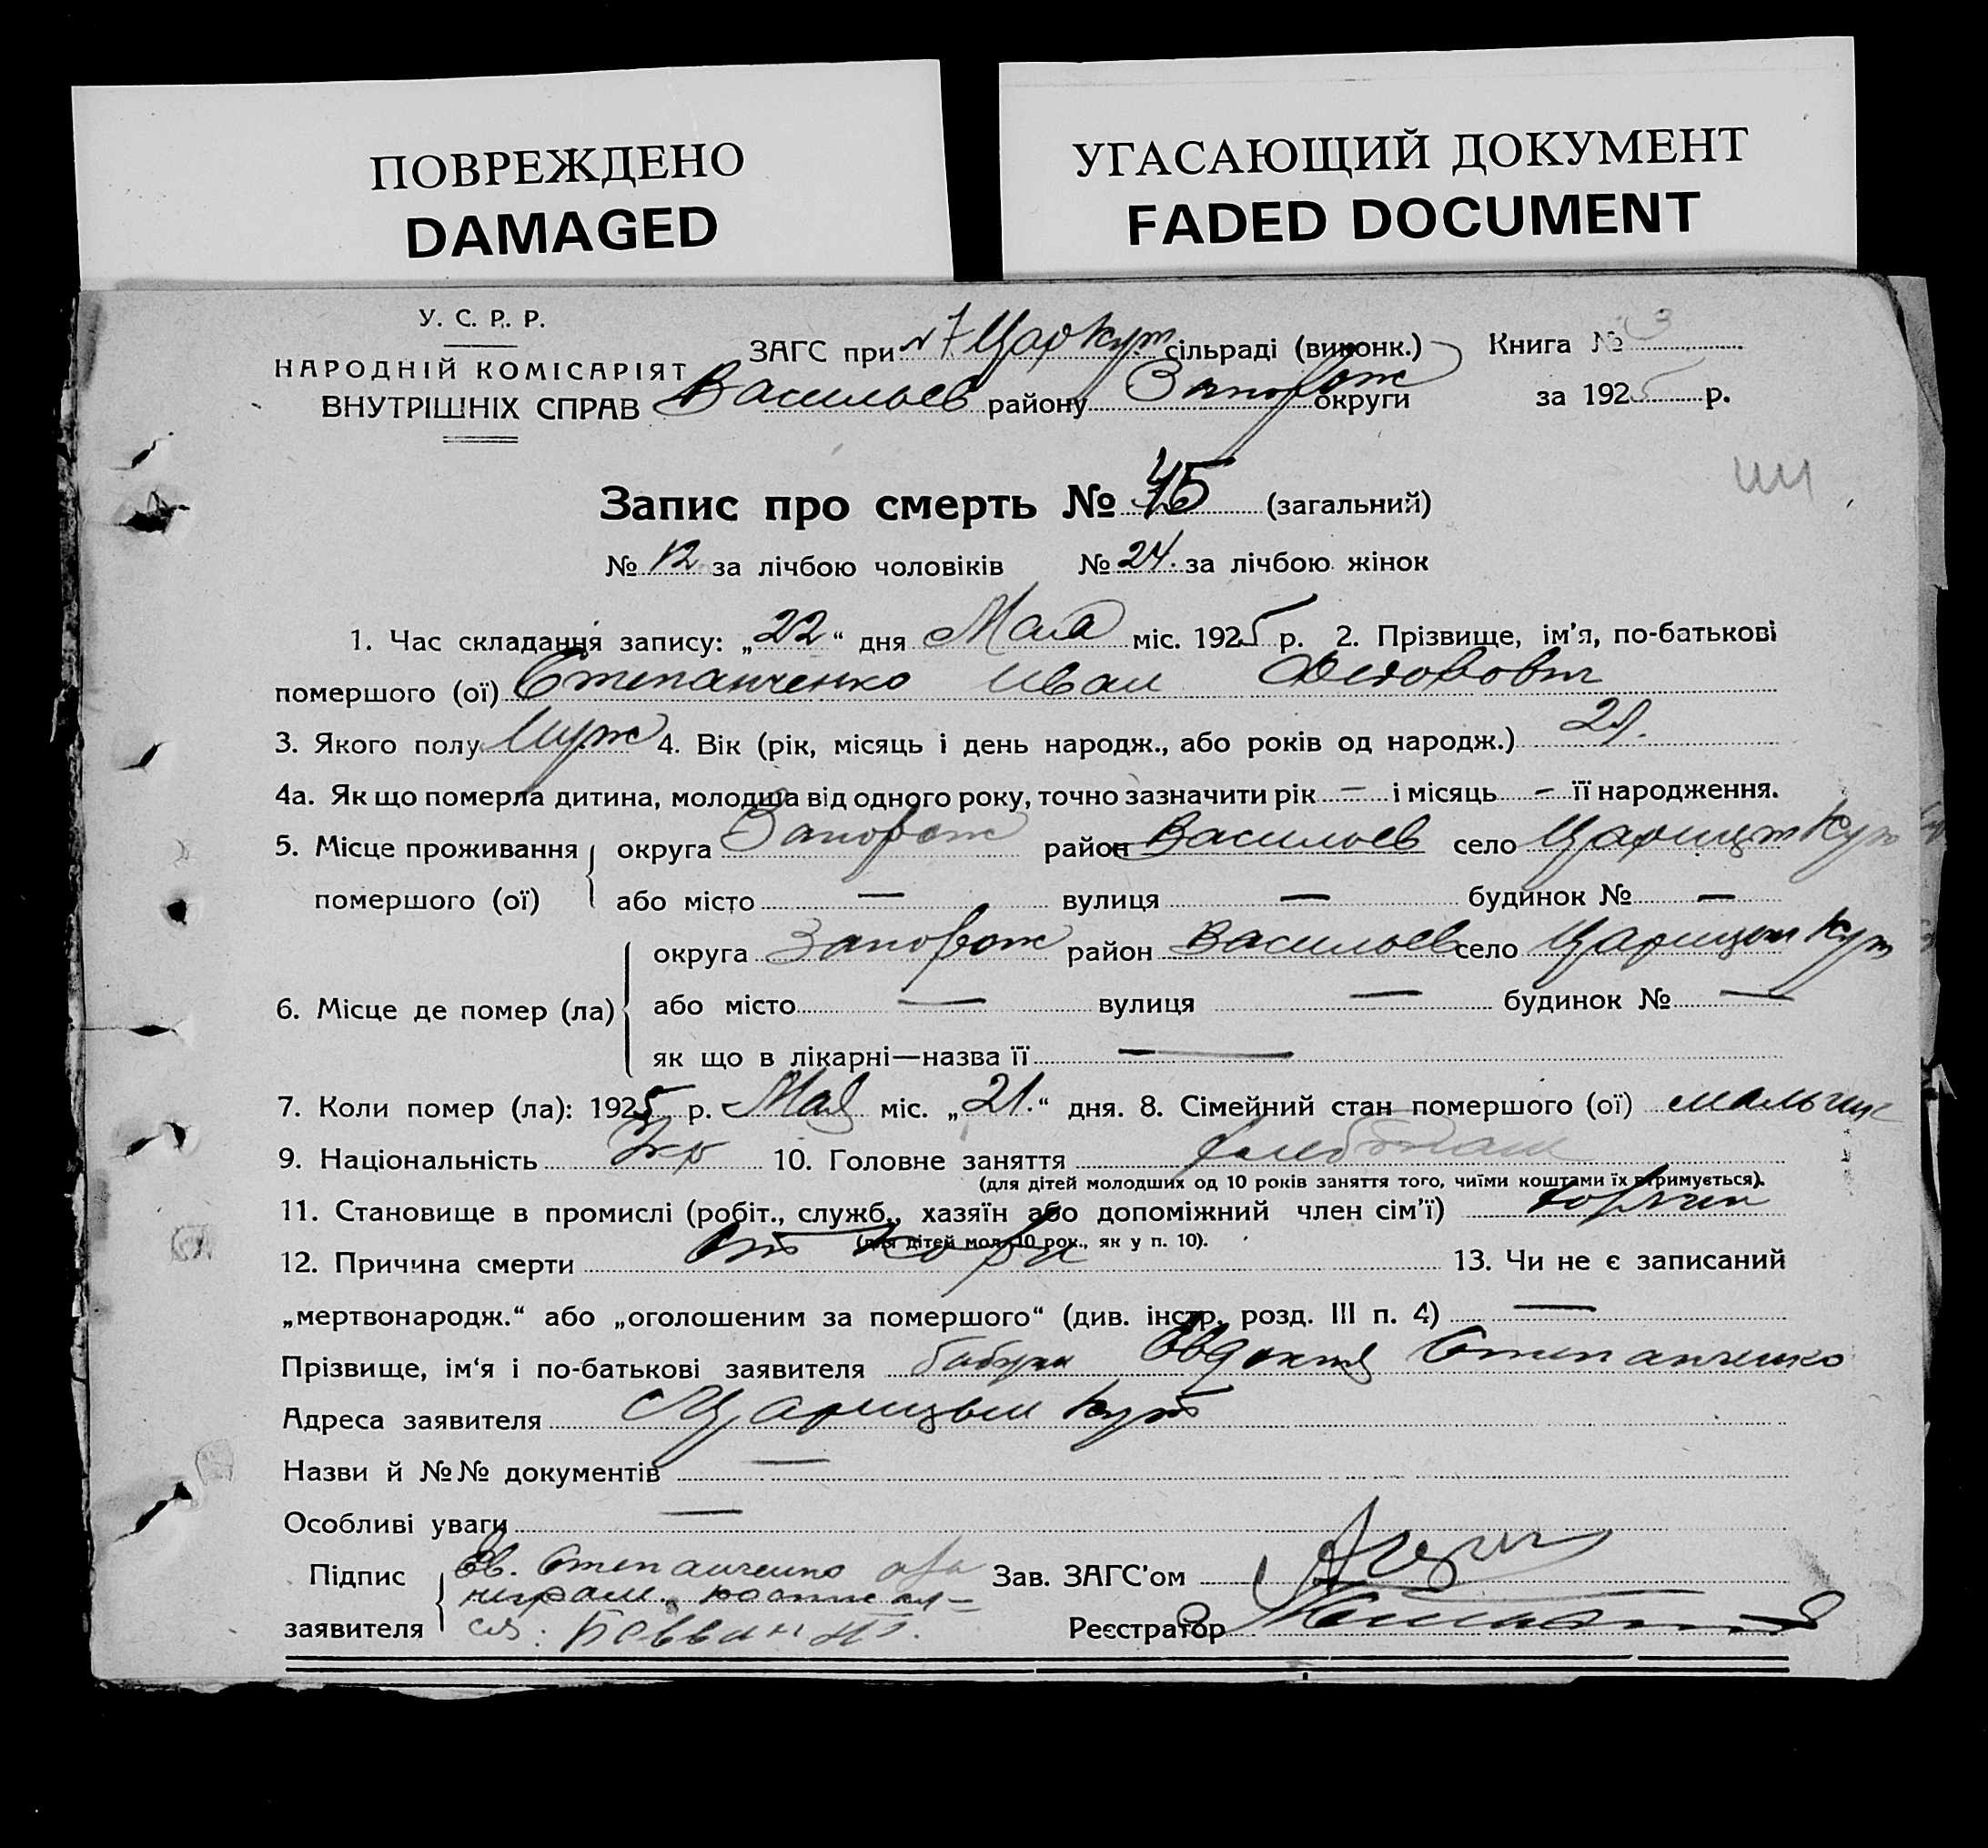 ПОВРЕЖДЕНО
DAMAGED
УГАСАЮЩИЙ ДОКУМЕНТ
FADED DOCUMENT
У. С. Р. Р.
НАРОДНІЙ КОМІСАРІЯТ
ВНУТРІШНІХ СПРАВ
ЗАГС при №7 Царкут сільраді (виконк.) Книга № 3
Васильев району Запорож округи за 1925 р.
Запис про смерть № 45 (загальний)
№ за лічбою чоловіків № 24. за лічбою жінок
1. Час складання запису: „22“ дня Мая міс. 1925 р. 2. Прізвище, ім'я, по-батькові
помершого (ої) Степанченко Иван
3. Якого полу Муж 4. Вік (рік, місяць і день народж., або років од народж.)
4а. Як що померла дитина, молодша від одного року, точно зазначити рік — і місяць — її народження.
5. Місце проживання округа Запорож район Васильев село Царицын Кут
помершого (ої) або місто — вулиця — будинок № —
округа Запорож район Васильев село Царицын Кут
6. Місце де помер (ла) або місто — вулиця — будинок № —
як що в лікарні—назва її —
7. Коли помер (ла): 1925 р. Мая міс. „21.“ дня. 8. Сімейний стан помершого (ої) мальчик
9. Національність Укр 10. Головне заняття хлебопаш
(для дітей молодших од 10 років заняття того, чиїми коштами їх втримується).
11. Становище в промислі (робіт., служб., хазяїн або допоміжний член сім'ї)
(для дітей мол. 10 рок., як у п. 10).
12. Причина смерти От кори 13. Чи не є записаний
„мертвонародж.“ або „оголошеним за помершого“ (див. інстр. розд. III п. 4) —
Прізвище, ім'я і по-батькові заявителя бабушка Евдокия Степанченко
Адреса заявителя с Царицын Кут
Назви й №№ документів —
Особливі уваги —
Підпис Ев. Степанченко Зав. ЗАГС'ом
заявителя Реєстратор